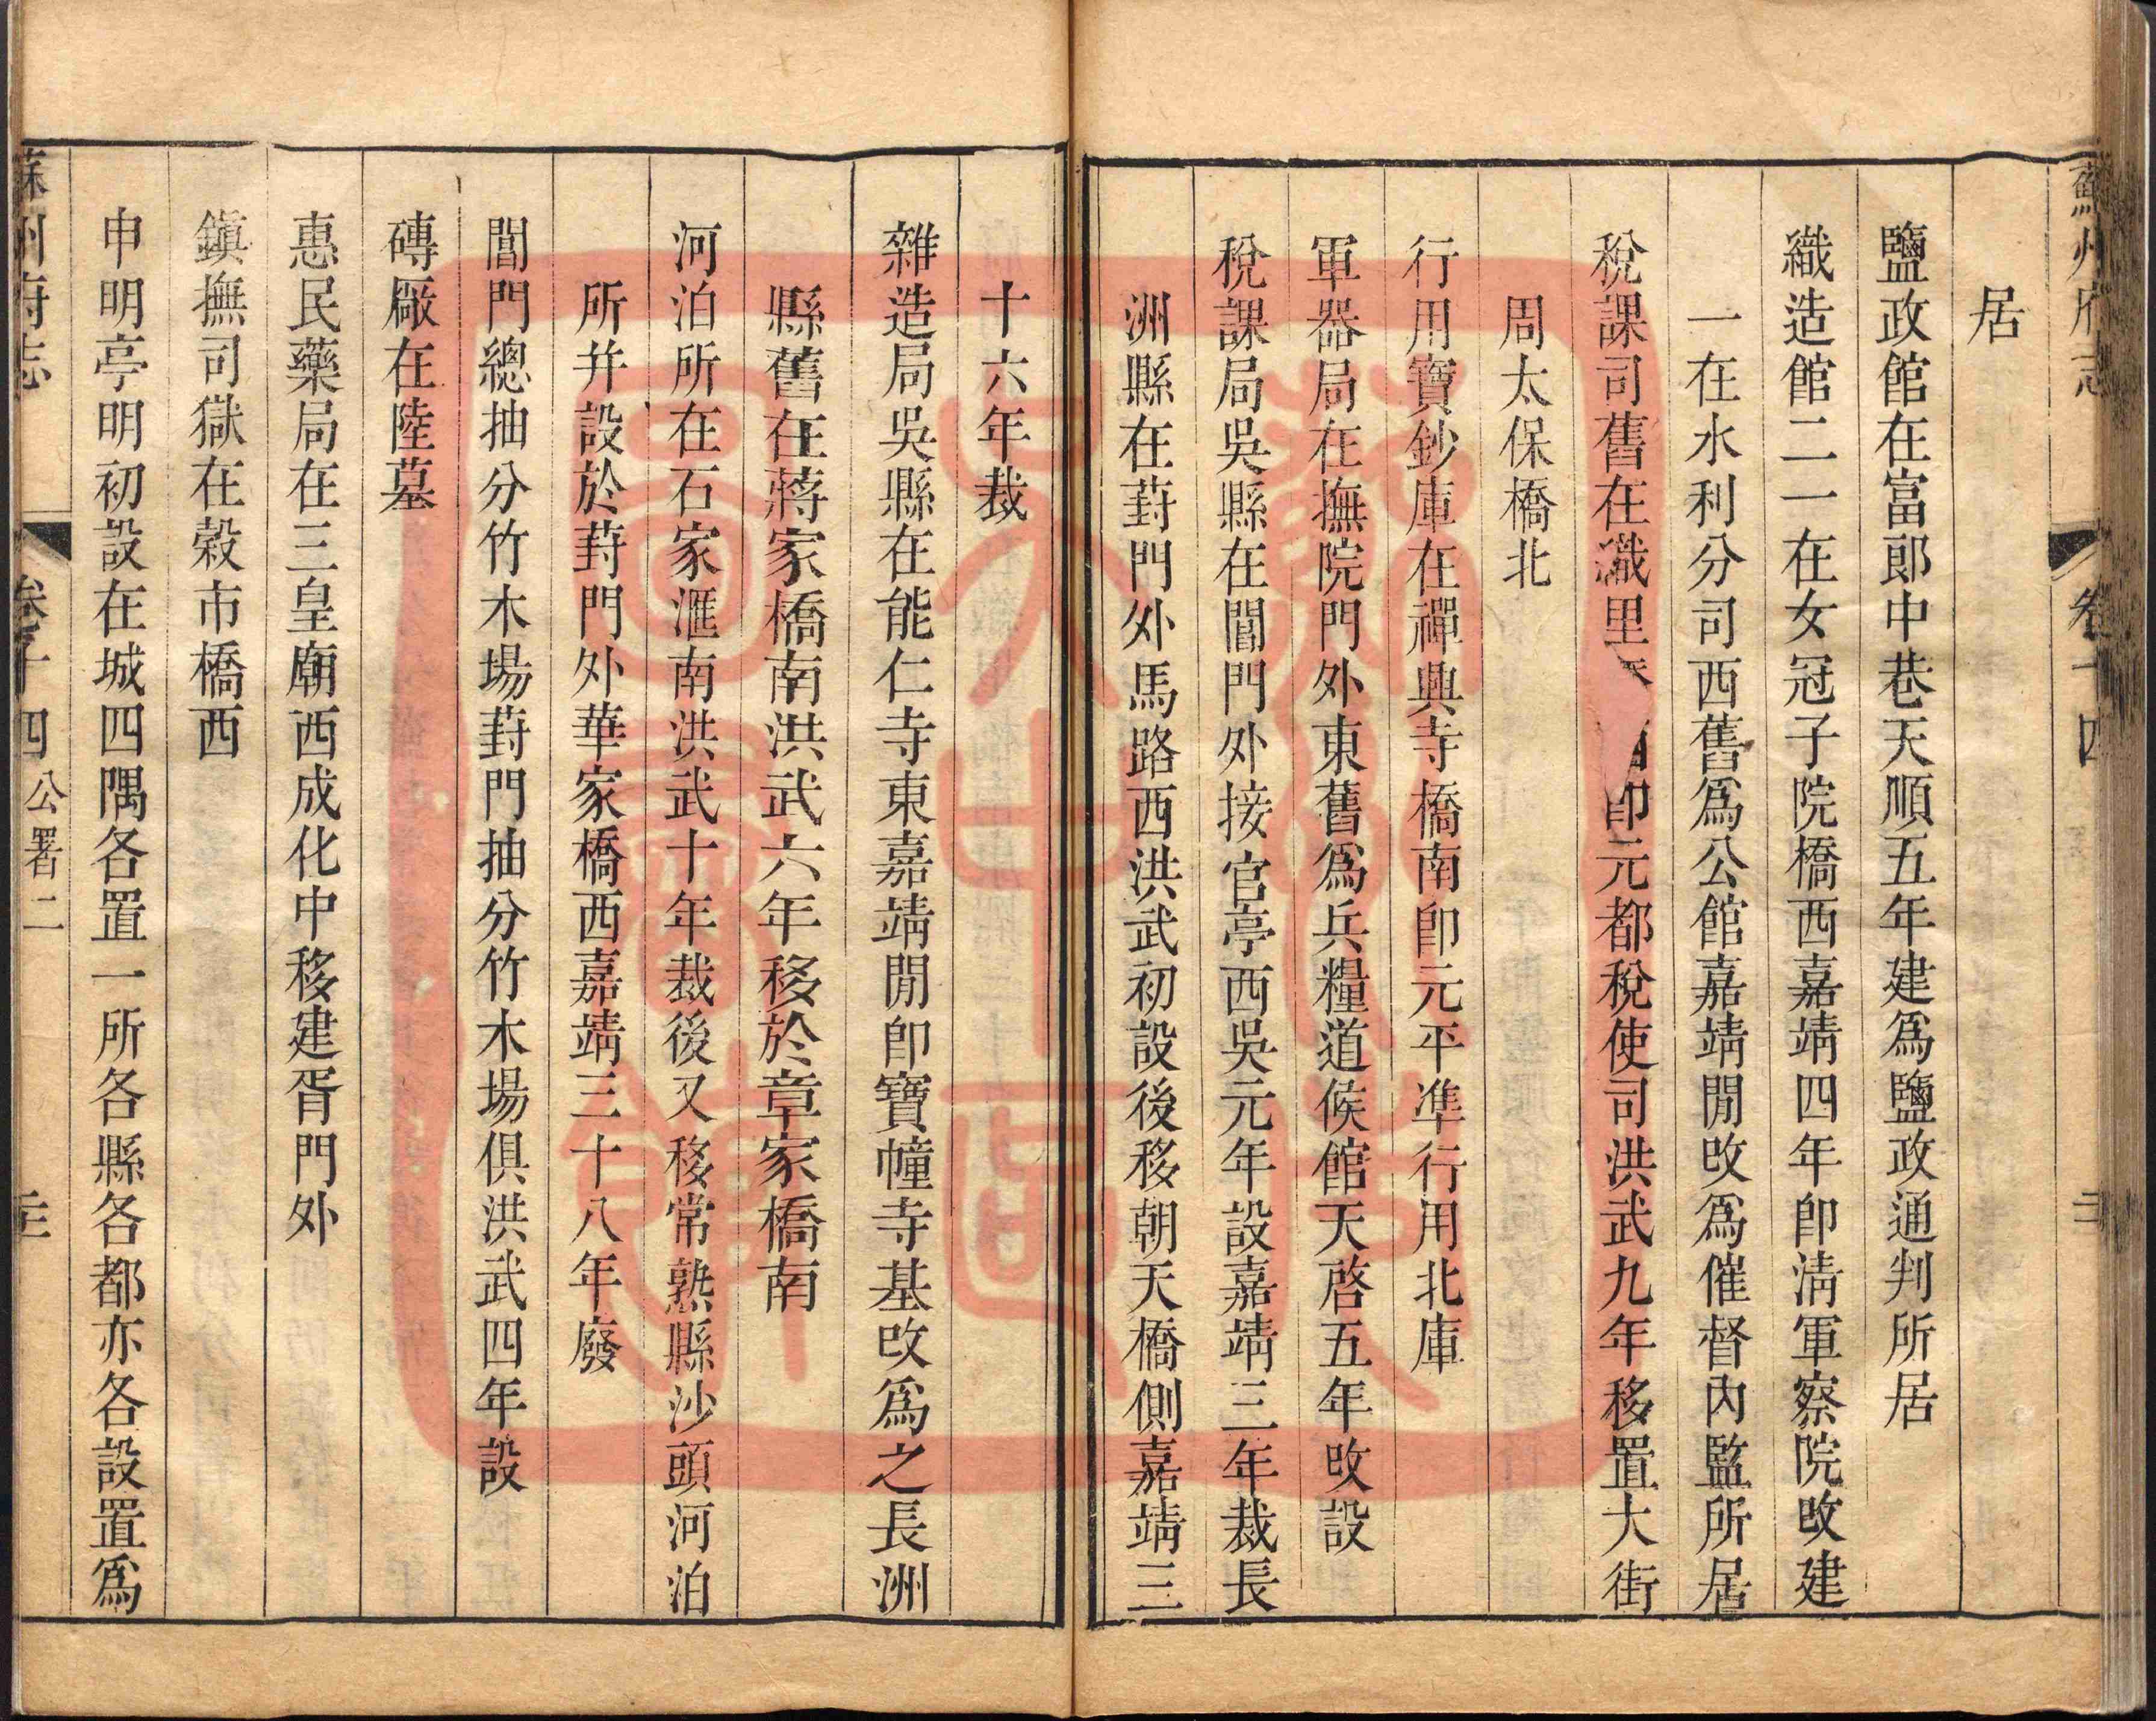 蘇州府志 卷十四
居
鹽政館在富郎中巷天順五年建爲鹽政通判所居
織造館二一在女冠子院橋西嘉靖四年卽淸軍察院改建
一在水利分司西舊爲公館嘉靖閒改爲催督內監所居
稅課司舊在瀐里 卽元都稅使司洪武九年移置大街
周太保橋北
行用寶鈔庫在禪興寺橋南卽元平準行用北庫
軍器局在撫院門外東舊爲兵糧道候館天啓五年改設
稅課局吳縣在閶門外接官亭西吳元年設嘉靖三年裁長
洲縣在葑門外馬路西洪武初設後移朝天橋側嘉靖三
十六年裁
雜造局吳縣在能仁寺東嘉靖閒卽寶幢寺基改爲之長洲
縣舊在蔣家橋南洪武六年移於章家橋南
河泊所在石家滙南洪武十年裁後又移常熟縣沙頭河泊
所并設於葑門外華家橋西嘉靖三十八年廢
閶門總抽分竹木場葑門抽分竹木場俱洪武四年設
磚厰在陸墓
惠民藥局在三皇廟西成化中移建胥門外
鎭撫司獄在穀市橋西
申明亭明初設在城四隅各置一所各縣各都亦各設置爲
蘇州府志 卷十四 公署二